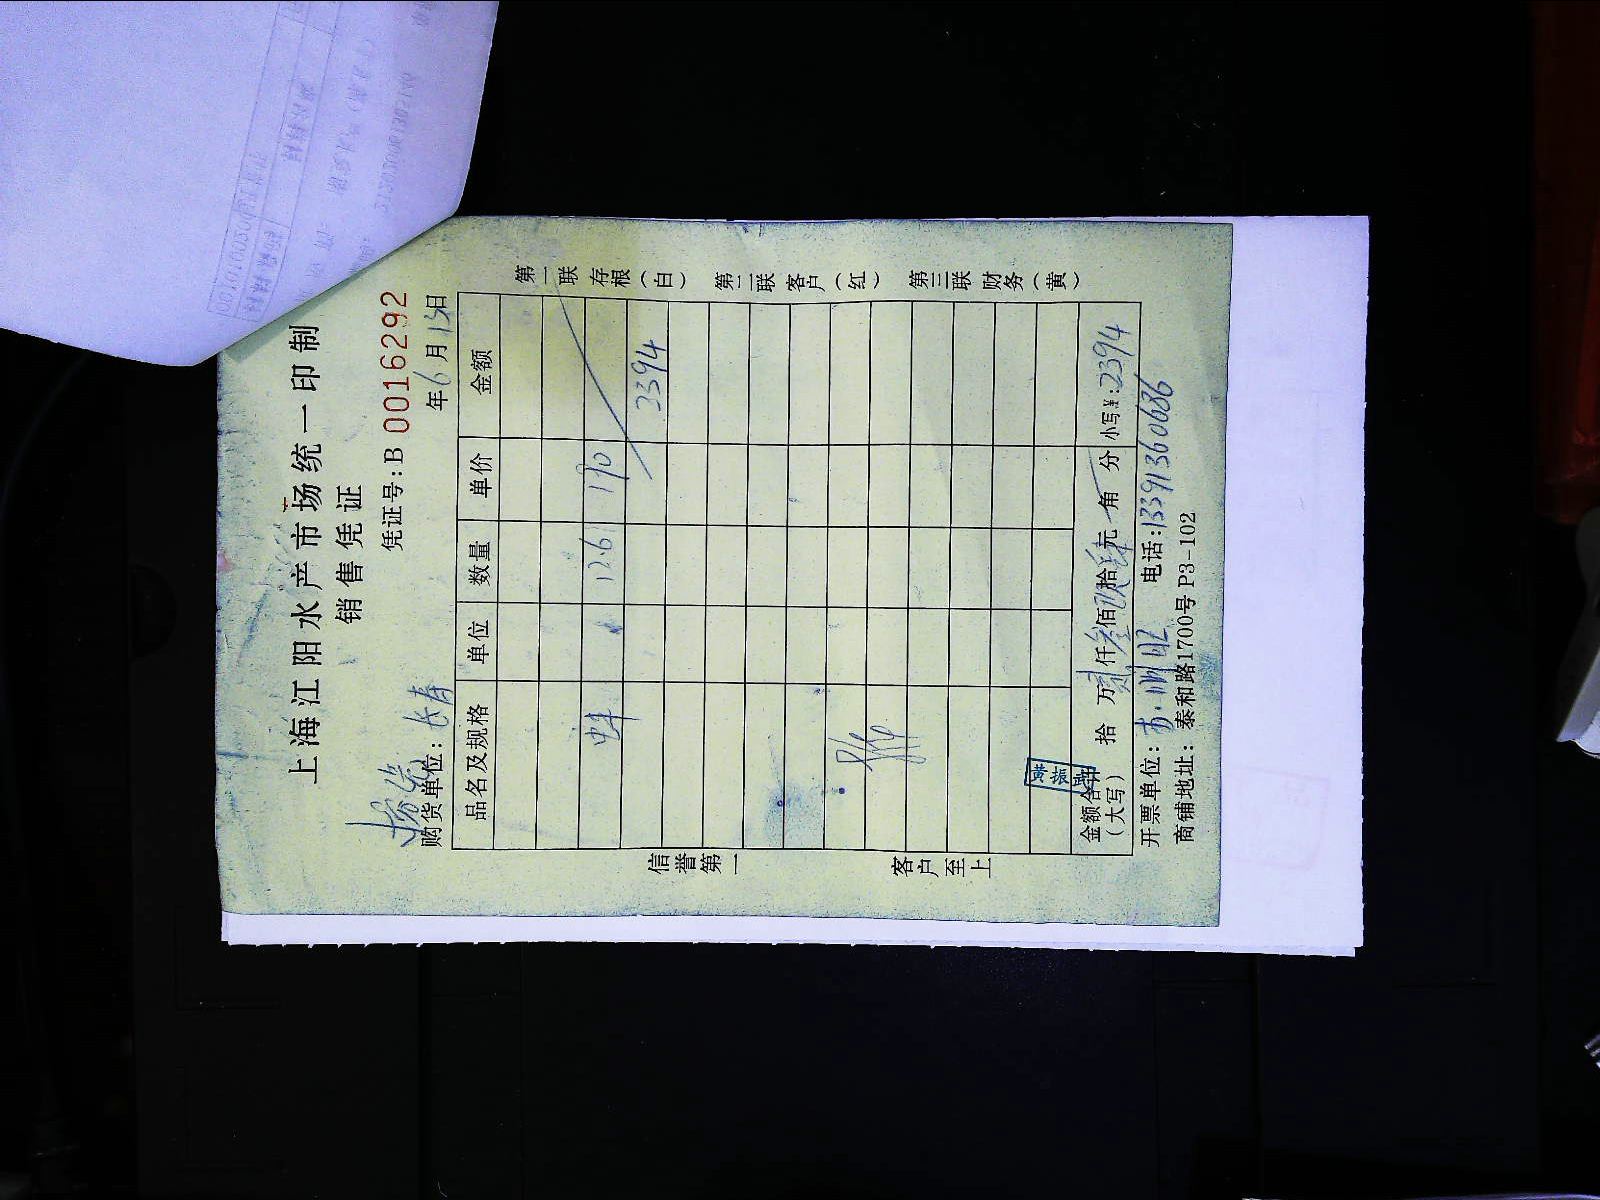 上海江阳水产市场统一印制
销售凭证
凭证号:B 0016292
购货单位: 长寿 年6月13日
品名及规格 单位 数量 单价 金额
12.6 190
2394
金额合计(大写) 拾 万贰仟叁佰玖拾肆元 角 分 小写¥:2394
开票单位: 电话:13391360686
商铺地址: 泰和路1700号 P3-102
黄振
信誉第一
客户至上
第一联 存根(白) 第二联 客户(红) 第三联 财务(黄)